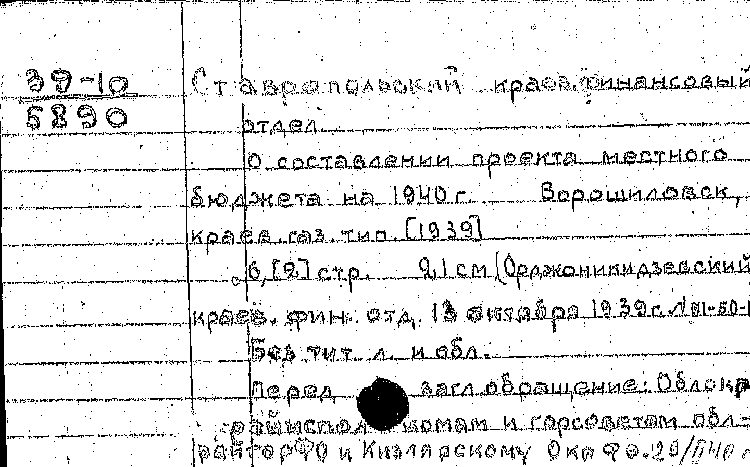 39-10
5890
Ставропольский краев. финансовый
отдел.
О составлении проекта местного
бюджета на 1940 г. Ворошиловск,
краев. газ. тип. [1939]
6, [2] стр. 21 см (Орджоникидзевский
краев. фин. отд. 13 октября 1939 г.
Без тит. л. и обл.
Перед загл. обращение: Облокр
райисполкомам и горсоветам обл-
райгорФО и Кизлярскому Окр ФО.